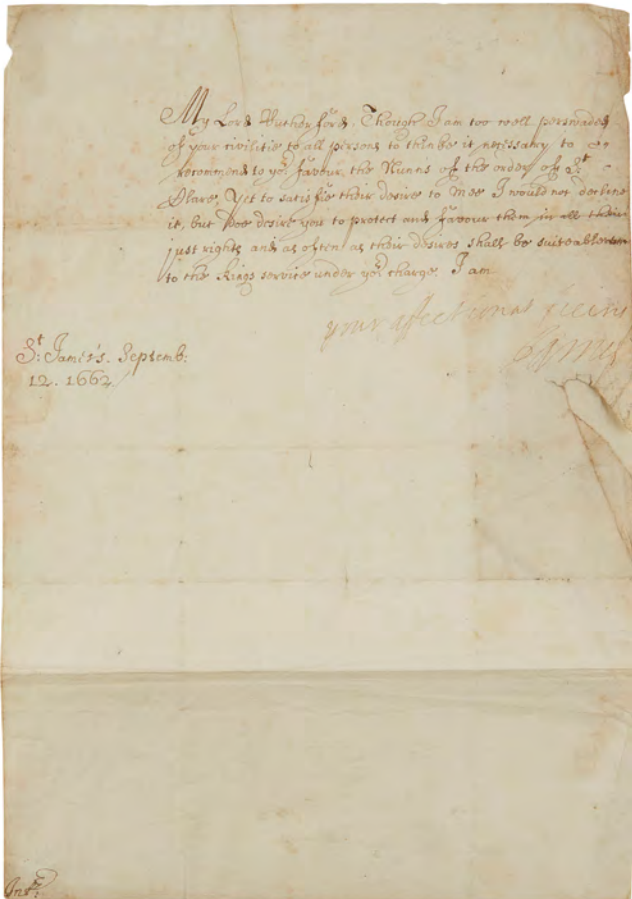 My Lord Rutherford. Though I am too well perswaded
of your civilitie to all persons to thinke it necessary to
recommend to yor favour the Nunns of the order of St
Clare, Yet to satisfie their desire to mee I would not decline
it, but Doe desire you to protect and favour them in all their
just rights and as often as their desires shall be suiteable
to the Kings service under yor charge. I am
your affectionat freind
James
St James's. Septemb:
12. 1662